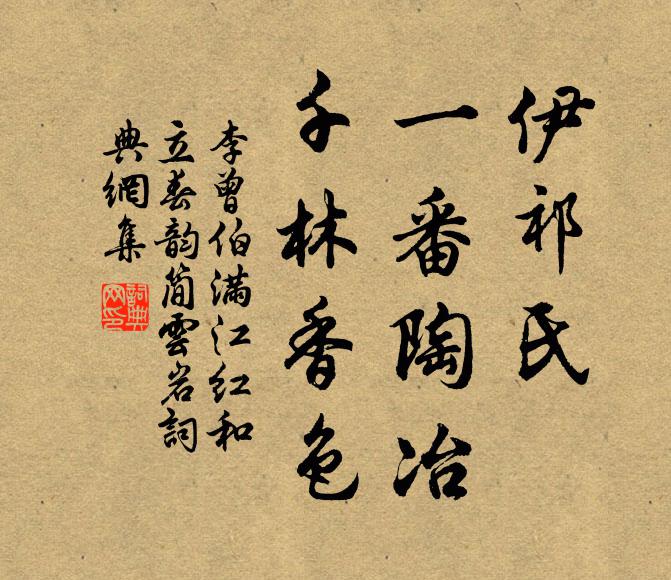 伊祁氏
一番陶冶
千林香色
李曾伯满江红和
立春韵简雲岩詞
典網集
詞典网印